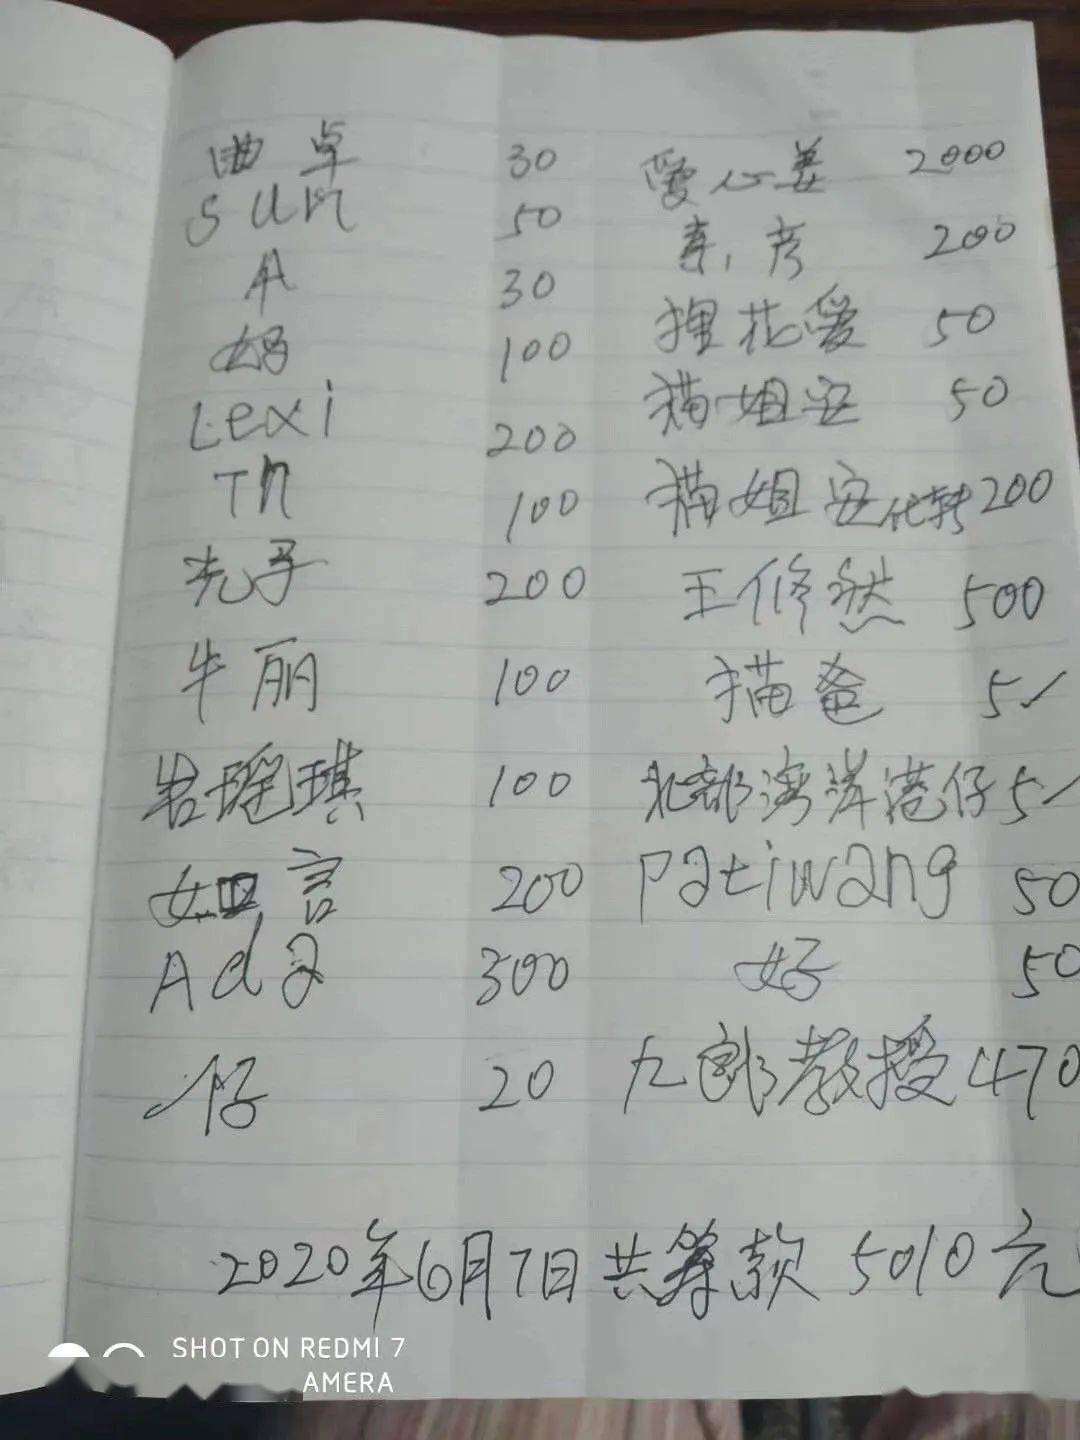 曲卓 30 爱心姜 2000
sun 50 寿,彦 200
A 30 狸花爱 50
妈 100 猫姐安 50
Lexi 200 猫姐安代转 200
Tn 100 王修然 500
先子 200 猫爸 5
牛丽 100 北部湾岸港仔 5
瑶琪 100 patiwang 50
如言 200 好 50
Ada 300 九郎教授 470
仔 20
2020年6月7日共筹款 5010元
SHOT ON REDMI 7
AMERA